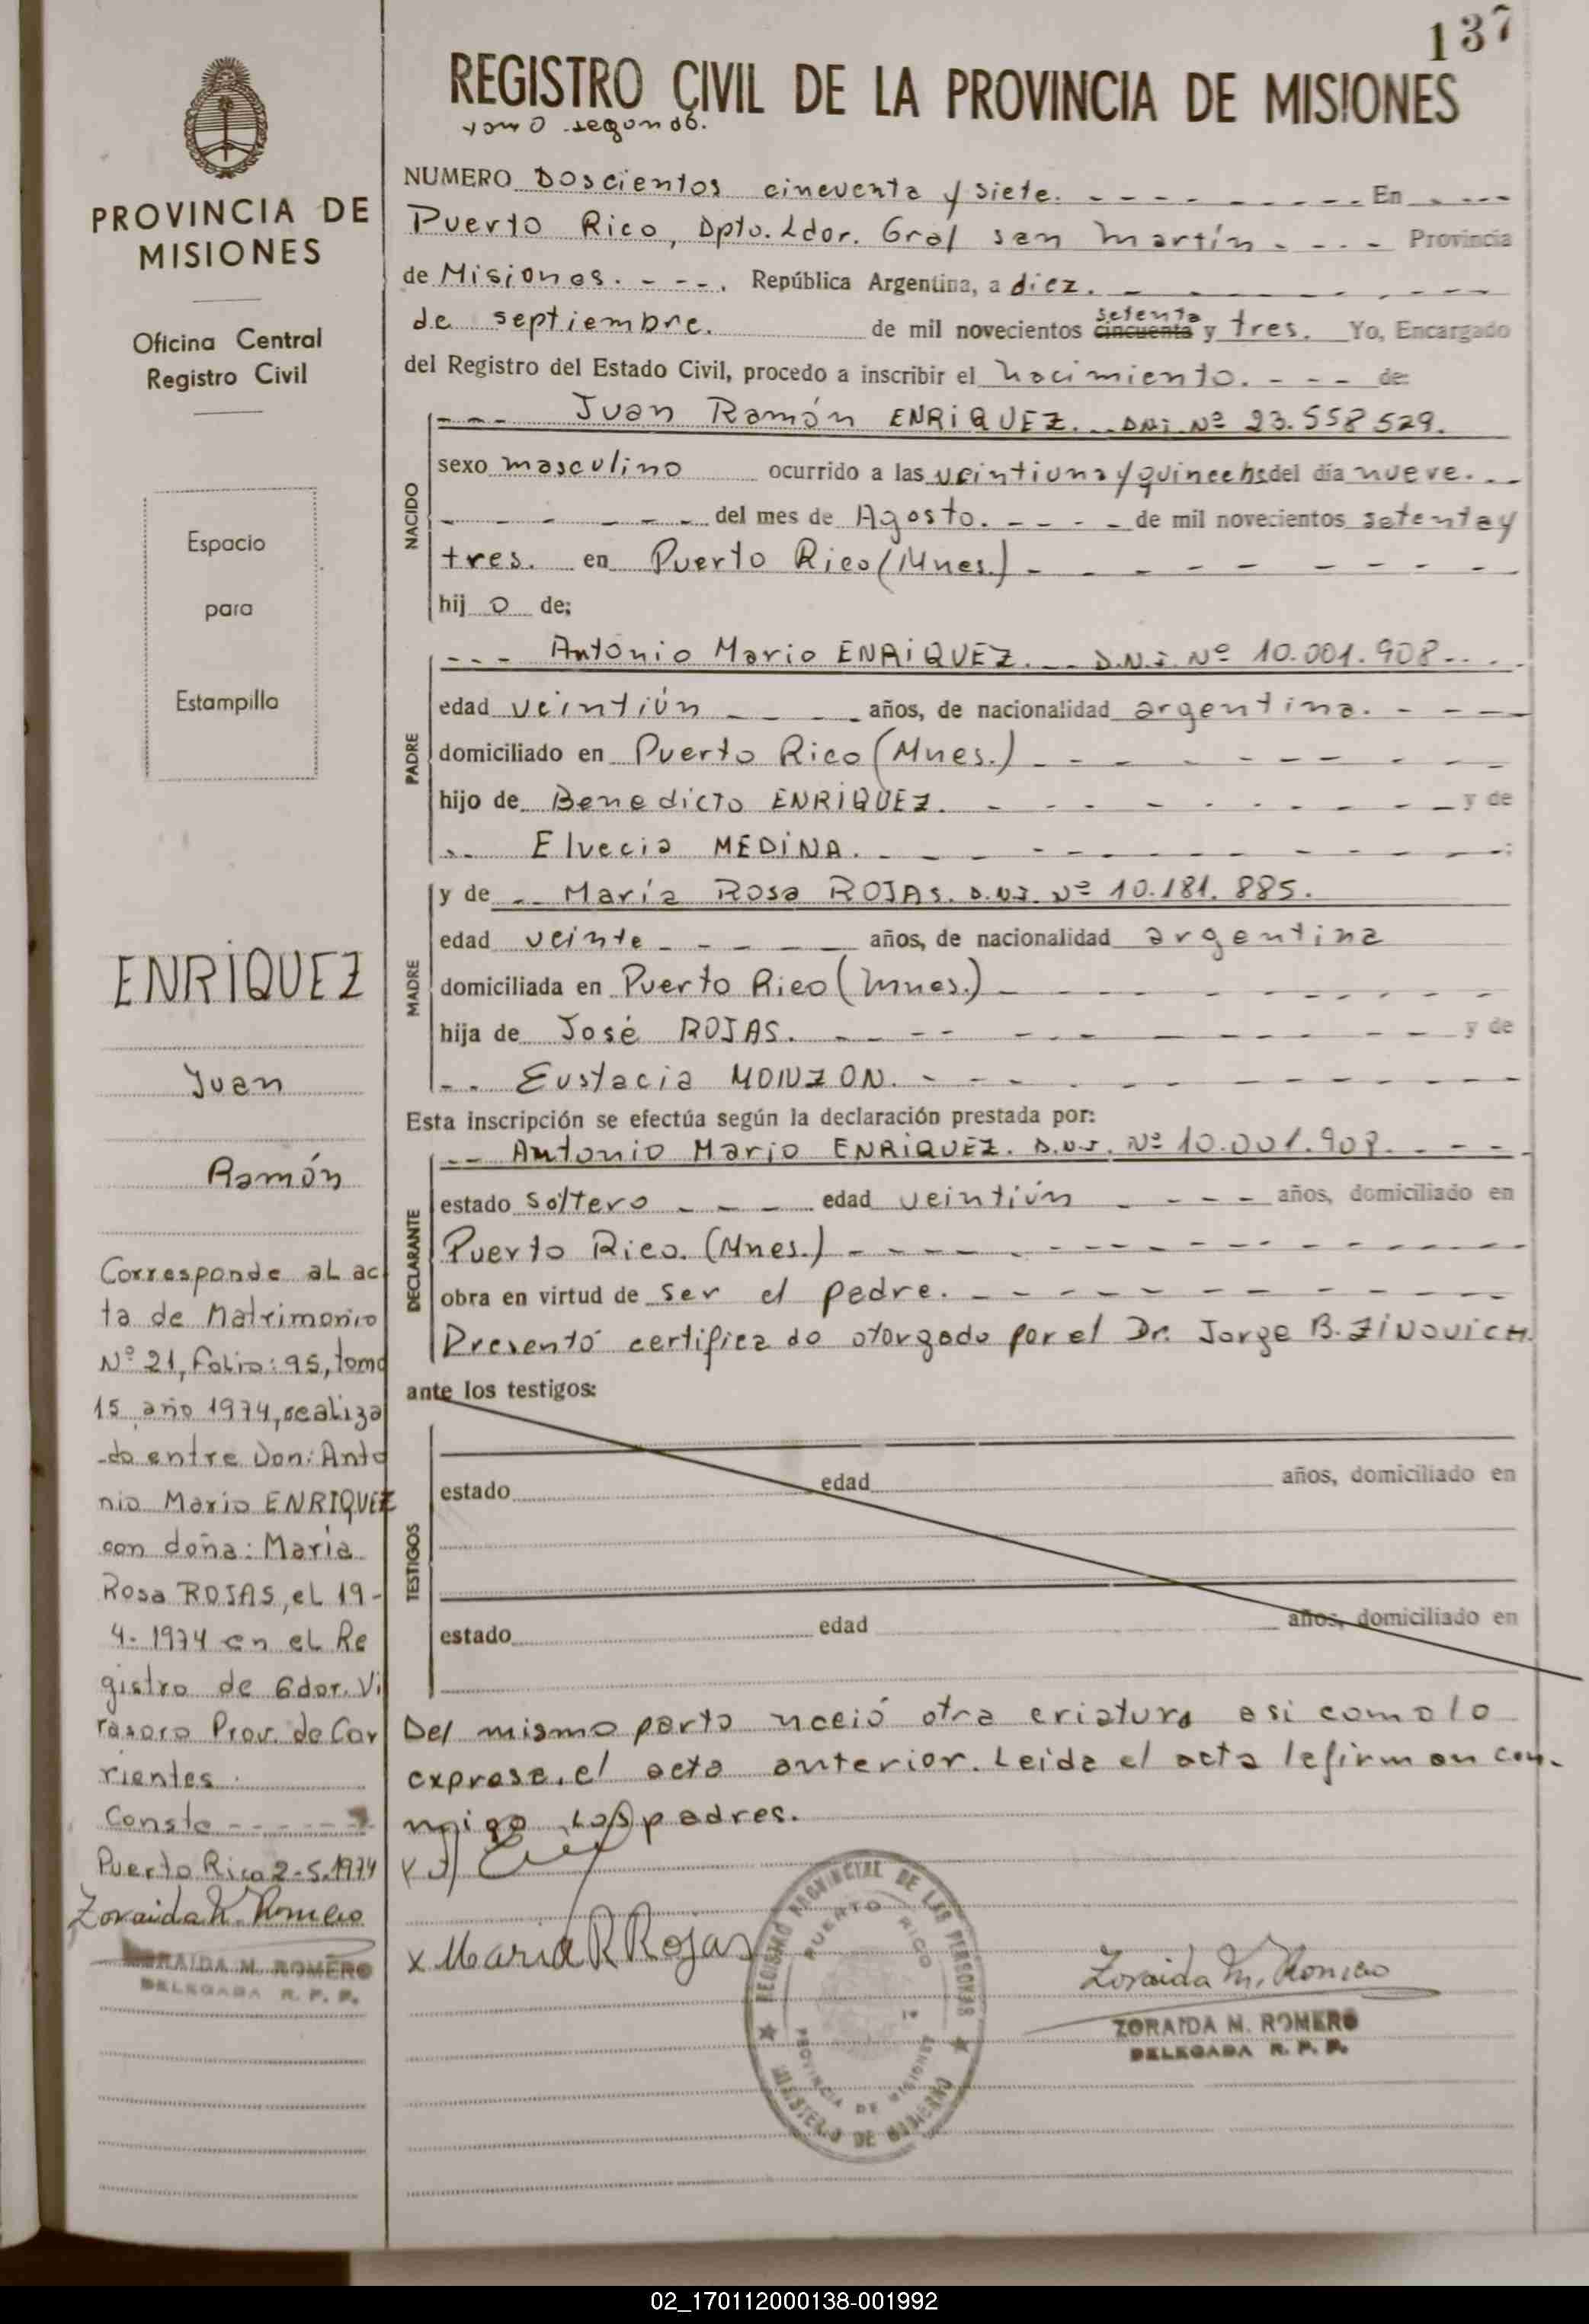 137
REGISTRO CIVIL DE LA PROVINCIA DE MISIONES
tomo segundo.
PROVINCIA DE
MISIONES
Oficina Central
Registro Civil
Espacio
para
Estampilla
ENRIQUEZ
Juan
Ramón
Corresponde al ac
ta de Matrimonio
Nº 21, folio: 95, tomo
15 año 1974, realiza
-do entre Don: Anto
nio Mario ENRIQUEZ
con doña: María
Rosa ROJAS, el 19-
4-1974 en el Re
gistro de Gdor. Vi
rasoro Prov. de Cor
rientes.
Conste - - - - - -
Puerto Rico 2-5-1974
Zoraida M. Romero
ZORAIDA M. ROMERO
DELEGADA R. P. P.
NUMERO Doscientos cincuenta y siete. - - - - - - - - En - - - -
Puerto Rico, Dpto. Ldor. Gral San Martín - - - - Provincia
de Misiones. - - - . República Argentina, a diez. - - - - - - -
setenta
de septiembre. de mil novecientos cincuenta y tres. Yo, Encargado
del Registro del Estado Civil, procedo a inscribir el nacimiento. - - - de:
NACIDO
- - - Juan Ramón ENRIQUEZ. - - DNI. Nº 23.558529.
sexo masculino ocurrido a las veintiuna y quince hs del día nueve. - -
- - - - - - - del mes de Agosto. - - - - de mil novecientos setenta y
tres. en Puerto Rico (Mnes.) - - - - - - - - -
hij o de;
PADRE
- - - Antonio Mario ENRIQUEZ. - - D.N.I. Nº 10.001.908 - - . .
edad veintiún - - - - años, de nacionalidad argentina. - - - -
domiciliado en Puerto Rico (Mnes.) - - - - - - - - - -
hijo de Benedicto ENRIQUEZ. - - - - - - - - - y de
- - Elvecia MEDINA. - - - - - - - - - - - ;
MADRE
y de - - María Rosa ROJAS. D.N.I. Nº 10.181.885.
edad veinte - - - - - años, de nacionalidad argentina
domiciliada en Puerto Rico (Mnes.) - - - - - - - - -
hija de José ROJAS. - - - - - - - - - - y de
- - Eustacia MONZON. - - - - - - - - - - -
Esta inscripción se efectúa según la declaración prestada por:
DECLARANTE
- - Antonio Mario ENRIQUEZ. D.N.I. Nº 10.001.908. - - -
estado soltero - - - edad veintiún - - - - años, domiciliado en
Puerto Rico. (Mnes.) - - - - - - - - - - - - -
obra en virtud de ser el padre. - - - - - - - - - -
Presentó certificado otorgado por el Dr. Jorge B. ZINOVICH.
ante los testigos:
TESTIGOS
estado edad años, domiciliado en
estado edad años, domiciliado en
Del mismo parto nació otra criatura así como lo
expresa el acta anterior. Leída el acta la firman con-
migo los padres.
x María R Rojas
REGISTRO PROVINCIAL DE LAS PERSONAS
PUERTO RICO
PROVINCIA DE MISIONES
MINISTERIO DE GOBIERNO
Zoraida M. Romero
ZORAIDA M. ROMERO
DELEGADA R. P. P.
02_170112000138-001992